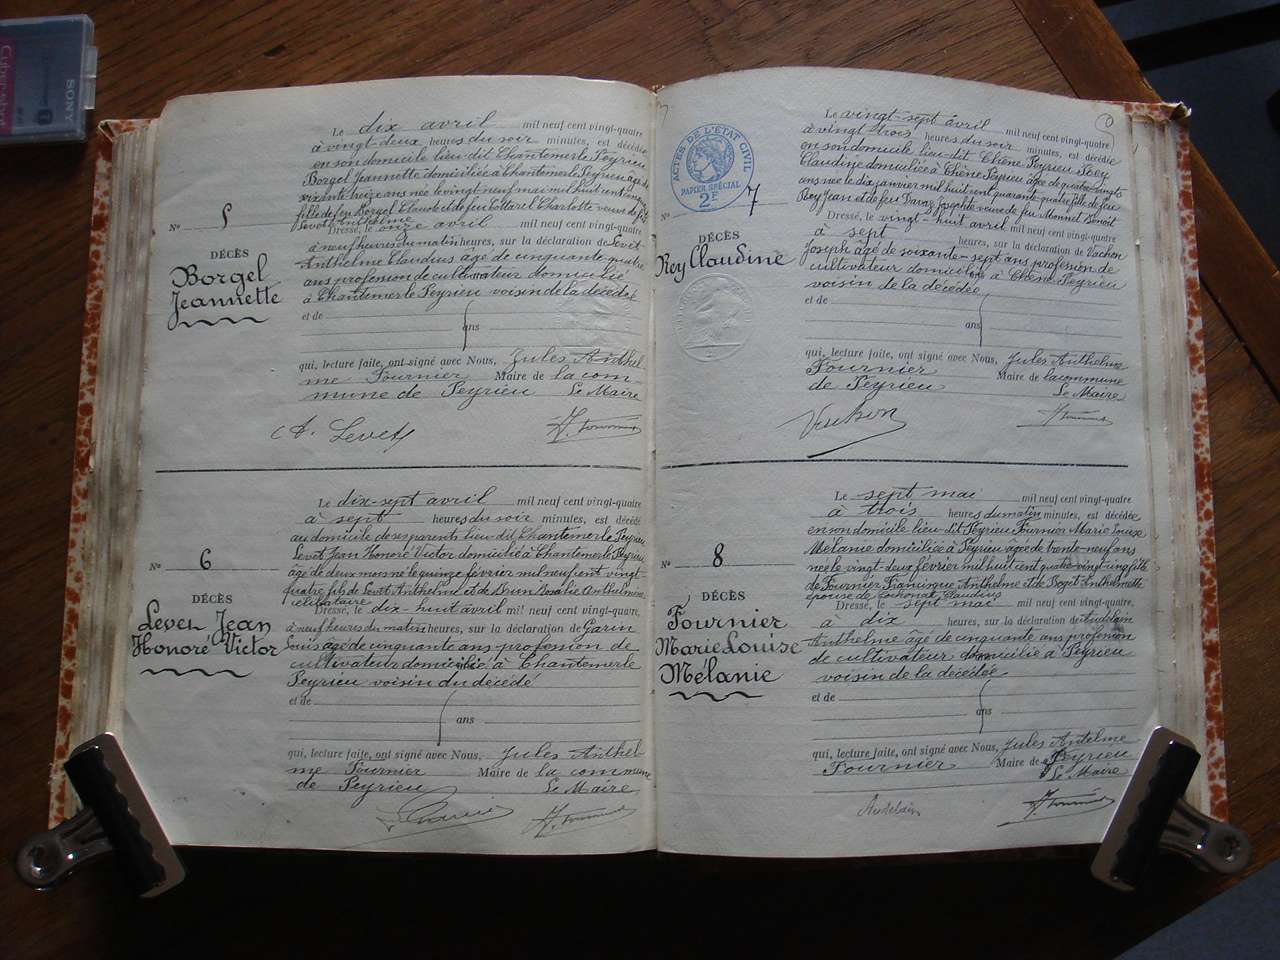 SONY
Cyber-shot
Le dix avril mil neuf cent vingt-quatre
à vingt-deux heures du soir minutes, est décédée
en son domicile lieu-dit Chantemerle Peyrieu
Borgel Jeannette domiciliée à Chantemerle Peyrieu âgée de
soixante treize ans née le vingt neuf mai mil huit cent
fille de feu Borgel Claude et de feu Charlotte veuve de feu
Levet Anthelme
Dressé, le onze avril mil neuf cent vingt-quatre
à neuf heures du matin heures, sur la déclaration de Levet
Anthelme Claudius âgé de cinquante quatre
ans profession de cultivateur domicilié
à Chantemerle Peyrieu voisin de la décédée
et de
ans
qui, lecture faite, ont signé avec Nous, Jules Anthel
me Fournier Maire de la com-
mune de Peyrieu Le Maire
Levet
N° 5
DÉCÈS
Borgel
Jeannette
Le dix-sept avril mil neuf cent vingt-quatre
à sept heures du soir minutes, est décédé
au domicile de ses parents lieu dit Chantemerle Peyrieu
Levet Jean Honoré Victor domicilié à Chantemerle Peyrieu
âgé de deux mois né le quinze février mil neuf cent vingt-
quatre fils de Levet Anthelme et de Brun Rosalie Anthelmine
célibataire
Dressé, le dix-huit avril mil neuf cent vingt-quatre,
à neuf heures du matin heures, sur la déclaration de Garin
Louis âgé de cinquante ans profession de
cultivateur domicilié à Chantemerle
Peyrieu voisin du décédé
et de
ans
qui, lecture faite, ont signé avec Nous, Jules Anthel
me Fournier Maire de la commune
de Peyrieu Le Maire
N° 6
DÉCÈS
Levet Jean
Honoré Victor
ACTES DE L'ÉTAT CIVIL
PAPIER SPÉCIAL
2F
Le vingt-sept avril mil neuf cent vingt-quatre
à vingt trois heures du soir minutes, est décédée
en son domicile lieu-dit Chêne Peyrieu Rey
Claudine domiciliée à Chêne Peyrieu âgée de quatre-vingts
ans née le dix janvier mil huit cent quarante quatre fille de feu
Rey Jean et de feu Josephte veuve de feu Monnet Benoît
Dressé, le vingt-huit avril mil neuf cent vingt-quatre
à sept heures, sur la déclaration de Vachon
Joseph âgé de soixante-sept ans profession de
cultivateur domicilié à Chêne Peyrieu
voisin de la décédée
et de
ans
qui, lecture faite, ont signé avec Nous, Jules Anthelme
Fournier Maire de la commune
de Peyrieu Le Maire
N° 7
DÉCÈS
Rey Claudine
Le sept mai mil neuf cent vingt-quatre
à trois heures du matin minutes, est décédée
en son domicile lieu-dit Peyrieu Fournier Marie Louise
Mélanie domiciliée à Peyrieu âgée de trente-neuf ans
née le vingt deux février mil huit cent quatre-vingt cinq fille
de Fournier Françisque Anthelme et de Anthelmette
épouse de Claudius
Dressé, le sept mai mil neuf cent vingt-quatre
à dix heures, sur la déclaration de
Anthelme âgé de cinquante ans profession
de cultivateur domicilié à Peyrieu
voisin de la décédée
et de
ans
qui, lecture faite, ont signé avec Nous, Jules Antelme
Fournier Maire de Peyrieu
Le Maire
N° 8
DÉCÈS
Fournier
Marie Louise
Mélanie